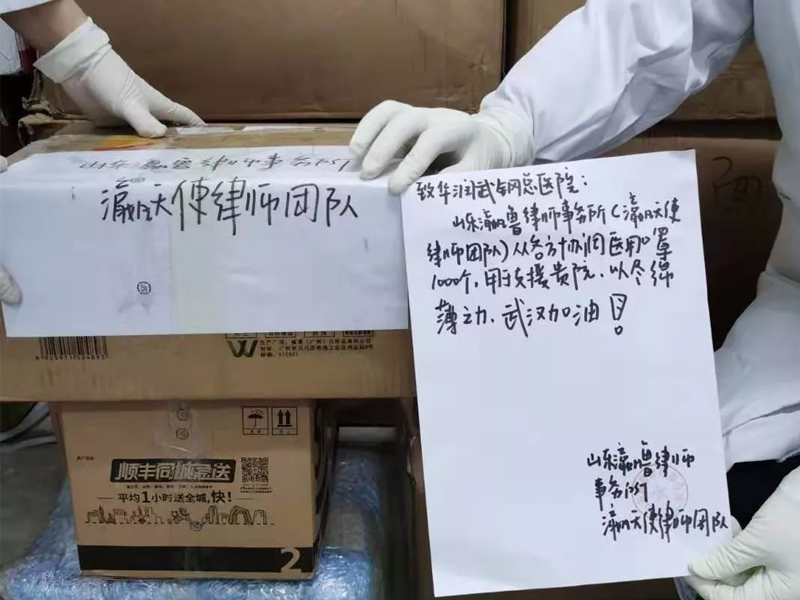 山东瀛鲁律师事务所
瀛天使律师团队
致华润武钢总医院:
山东瀛鲁律师事务所(瀛天使
律师团队)从各方协调医用口罩
1000个,用于支援贵院,以尽绵
薄之力、武汉加油!
山东瀛鲁律师
事务所
瀛天使律师团队
顺丰同城急送
平均1小时送全城,快!
2